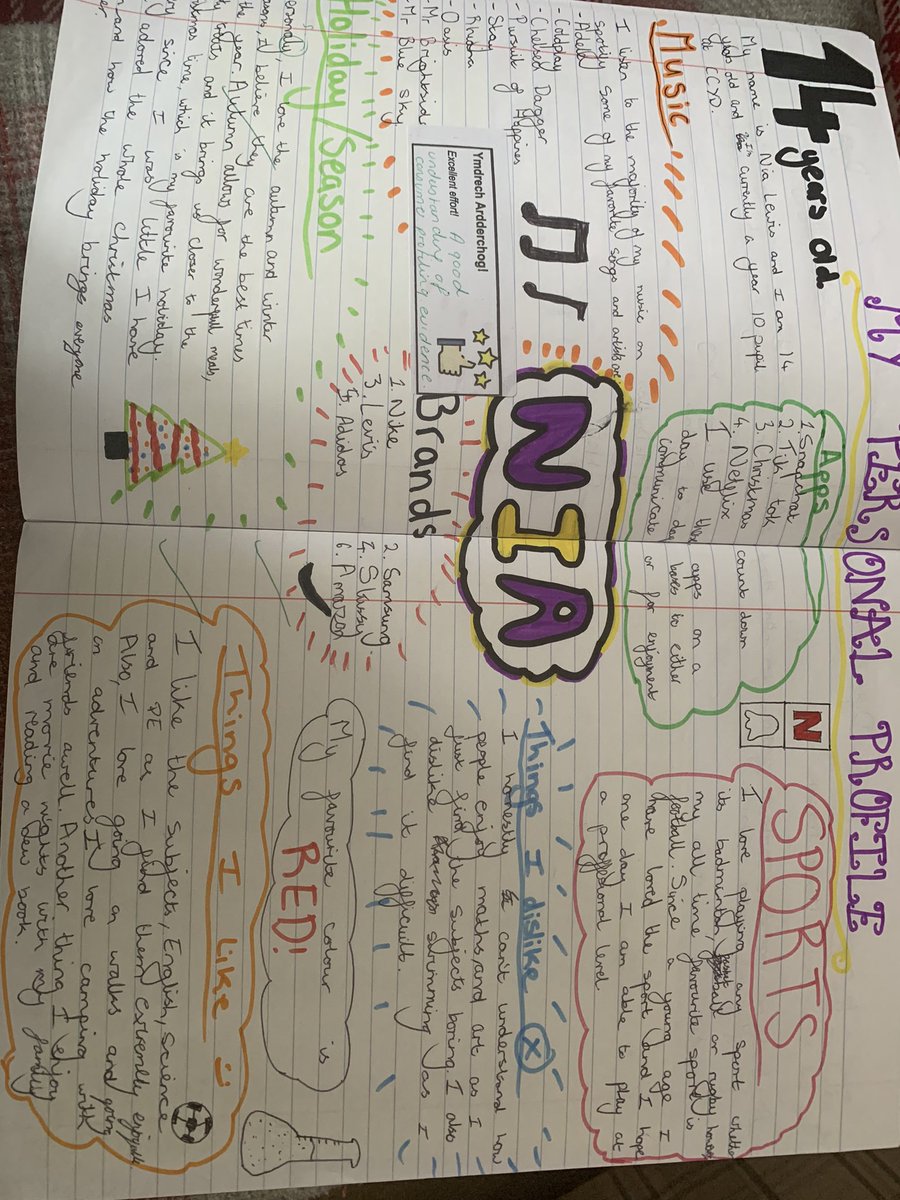 MY PERSONAL PROFILE
14 years old
My name is Nia Lewis and I am 14
years old and I'm currently a year 10 pupil
at CCYD.
Music
I listen to the majority of my music on
spotify some of my favorite songs and artists are
- Adele
- Coldplay
- Chelsea Dagger
- Pursuit of Happines
- Skay
- Rhianna
- Oasis
- Mr Brightside
- Mr Blue sky
Apps
1. Snapchat
2. Tik tok
3. Christmas count down
4. Netflix
I use these apps on a
day to day bases to either
communicate or for enjoyment
N
SPORTS
I love playing any sport whether
its badminton, football or rugby however
my all time favourite sport is
football. Since a young age I
have loved the sport and I hope
one day I am able to play at
a proffesional level
NIA
Ymdrech Ardderchog!
Excellent effort! A good
understanding of
consumer profiling evidence.
Brands
1. Nike
2. Samsung
3. Levis
4. Stussy
5. Adidas
6. Amazon
Things I dislike x
I honestly cant understand how
people enjoy maths, and art as I
just find the subjects boring. I also
dislike swimming as I
find it difficult.
My favourite colour is
RED!
Holiday/Season
I love the autumn and winter
I believe they are the best times
year. Autumn allows for wonderfull meals,
and it brings us closer to the
time, which is my favourite holiday.
since I was little I have
adored the whole christmas
and how the holiday brings everyone
Things I like :)
I like the subjects, English, Science
and PE as I find them extremely enjoyable
Also, I love going on walks and going
on adventures. I love camping with
friends aswell. Another thing I enjoy
are movie nights with my family
and reading a new book.